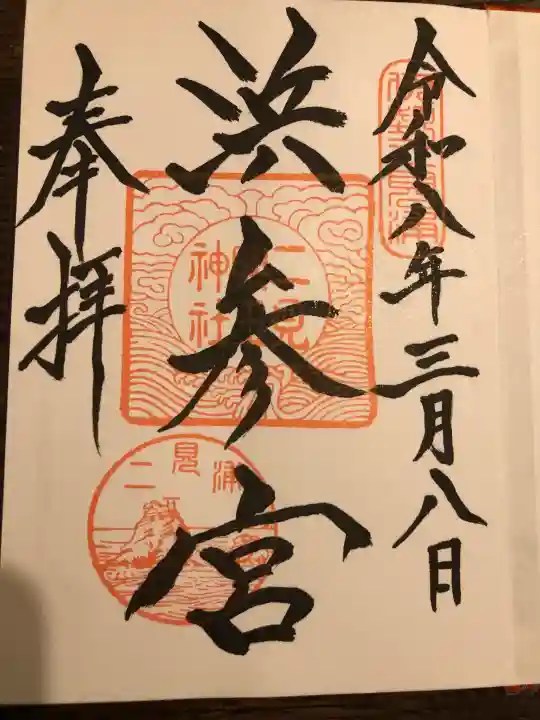 令和八年三月八日
浜参宮
奉拝
二見
神社
二見浦